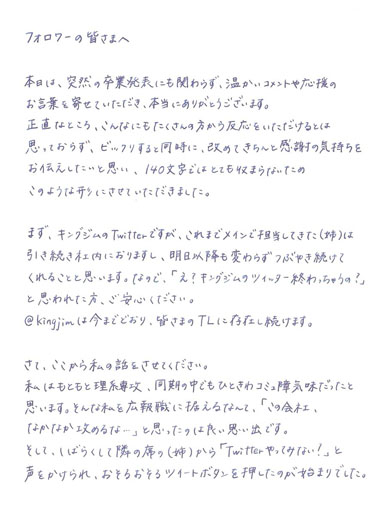 フォロワーの皆さまへ
本日は、突然の卒業発表にも関わらず、温かいコメントや応援の
お言葉を寄せていただき、本当にありがとうございます。
正直なところ、こんなにもたくさんの方から反応をいただけるとは
思っておらず、ビックリすると同時に、改めてきちんと感謝の気持ちを
お伝えしたいと思い、140文字ではとても収まらないため
このような形にさせていただきました。
まず、キングジムのTwitterですが、これまでメインで担当してきた(姉)は
引き続き社内におりますし、明日以降も変わらずつぶやき続けて
くれることと思います。なので、「え？キングジムのツイッター終わっちゃうの？」
と思われた方、ご安心ください。
@kingjimは今までどおり、皆さまのTLに存在し続けます。
さて、ここから私の話をさせてください。
私はもともと理系専攻、同期の中でもひときわコミュ障気味だったと
思います。そんな私を広報職に据えるなんて、「この会社、
なかなか攻めるな…」と思ったのは良い思い出です。
そして、しばらくして隣の席の(姉)から「Twitterやってみない？」と
声をかけられ、おそるおそるツイートボタンを押したのが始まりでした。